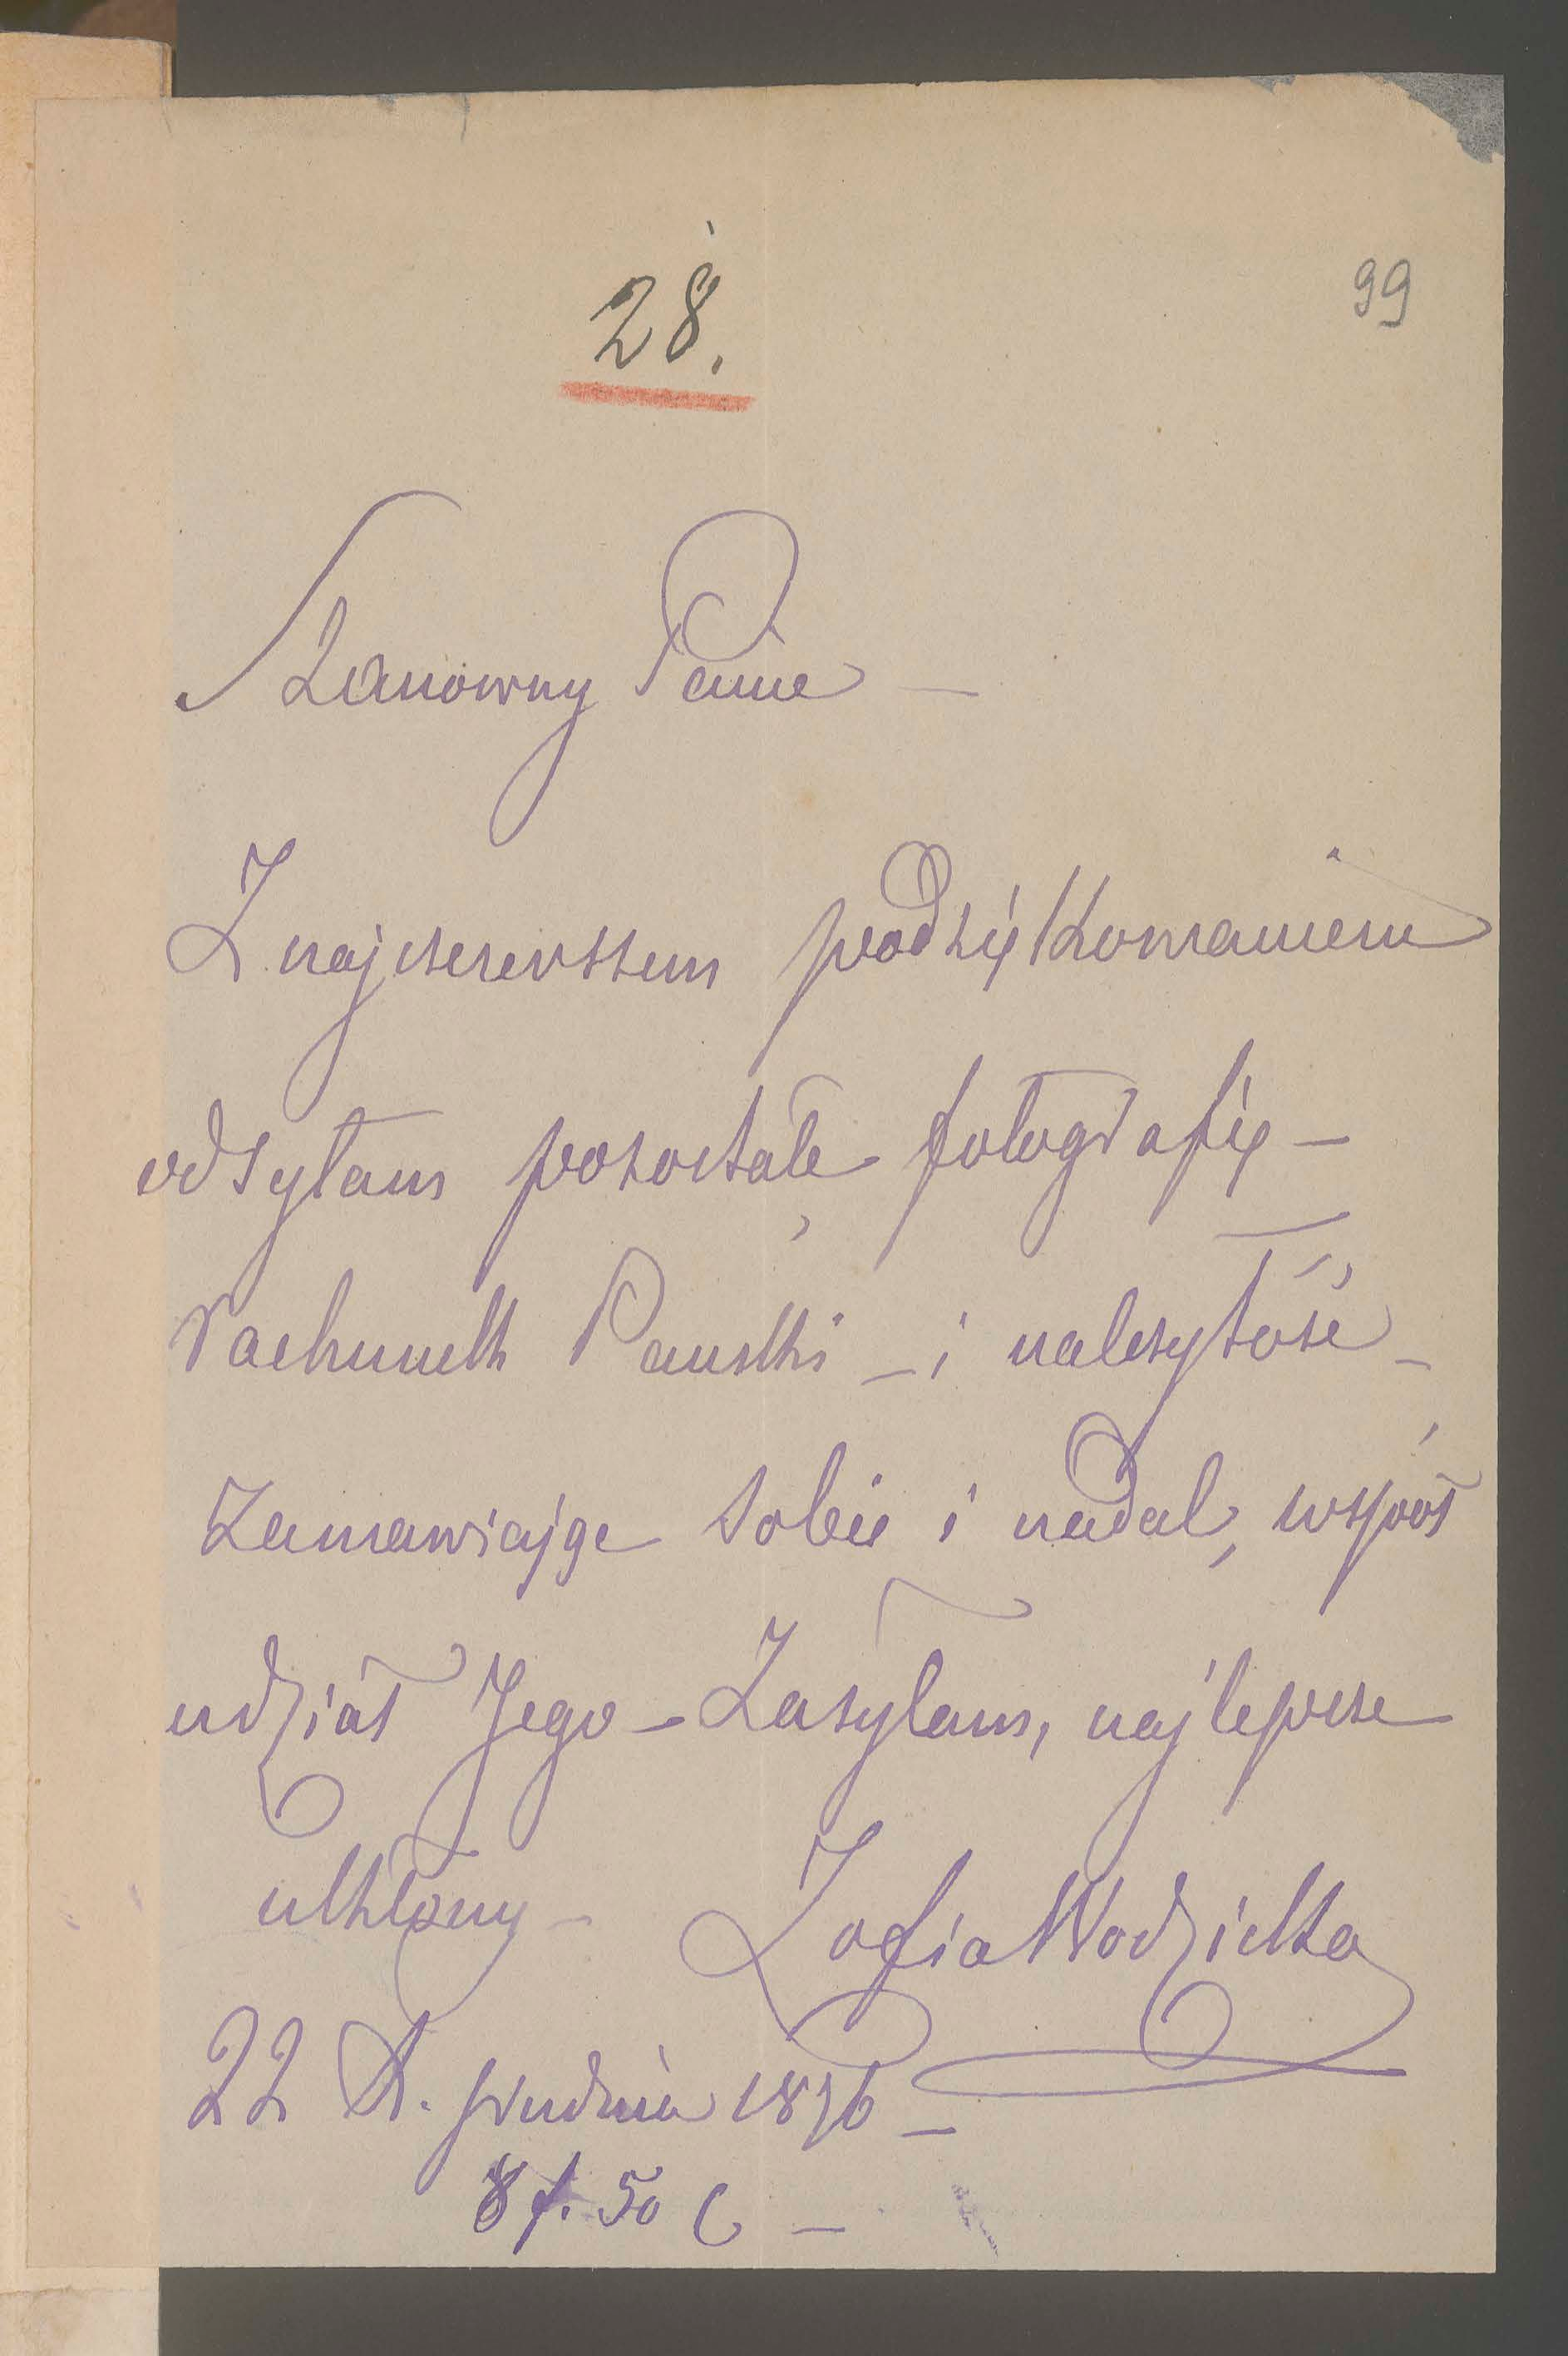 28.
99
Szanowny Panie —
Z najszczerszem podziękowaniem
odsyłam pozostałę fotografię —
rachunek Pański — i należytość —
Zamawiając sobie i nadal, współ
udział Jego — Zasyłam, najlepsze
ukłony — Zofia Wodzicka
22 D. grudnia 1876 —
8 f. 50 c —